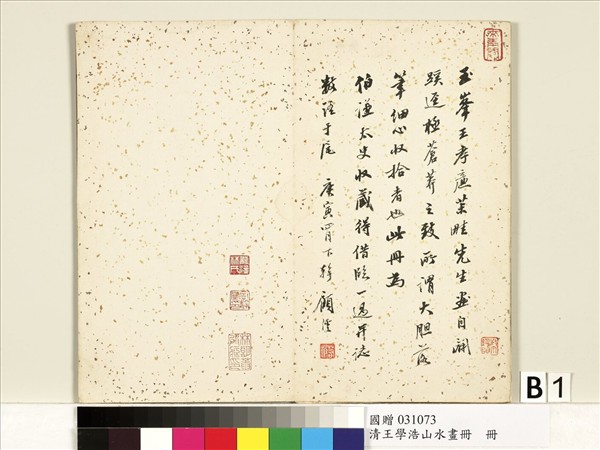 玉峯王孝廉菉畦先生畫自闢
蹊逕極蒼莽之致所謂大胆落
筆細心收拾者也此冊為
伯謙太史收藏得借臨一過并志
數語于尾 庚寅四月下澣 顧澐
B 1
國贈 031073
清王學浩山水畫冊 冊